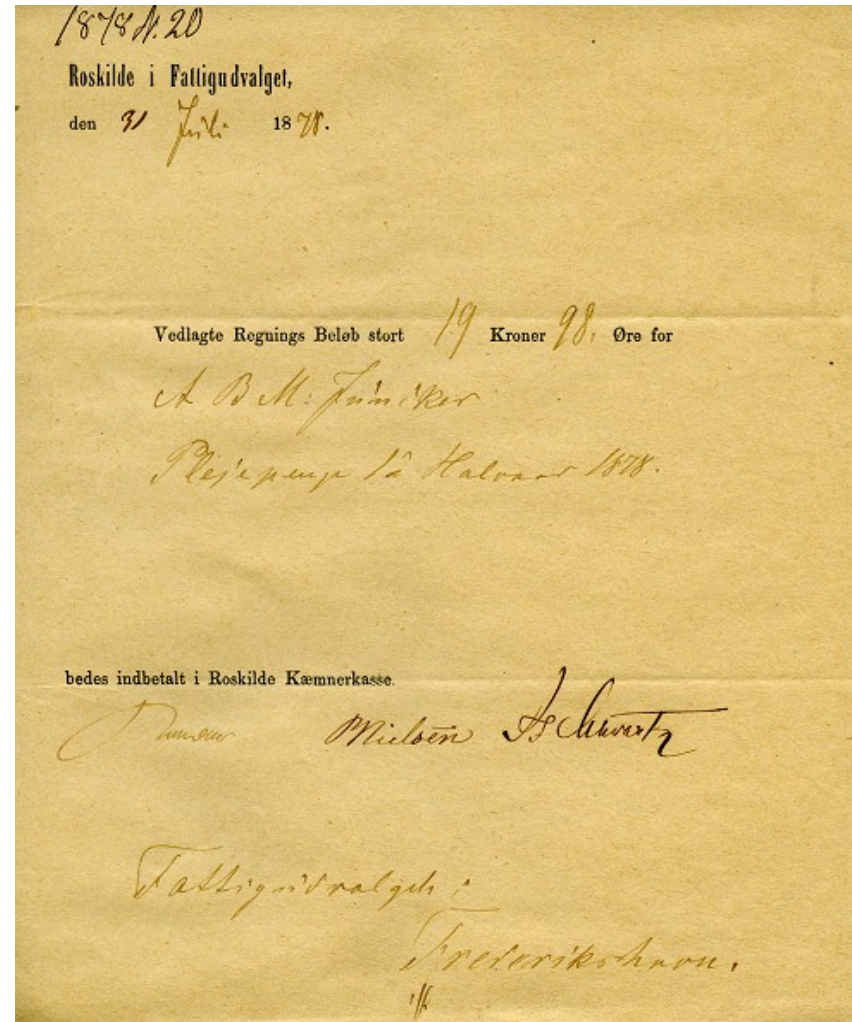 1878 N. 20
Roskilde i Fattigudvalget,
den 31 Juli 1878.
Vedlagte Regnings Beløb stort 19 Kroner 98. Øre for
A B M: Juniker
Plejepenge 1ā Halvaar 1878.
bedes indbetalt i Roskilde Kæmnerkasse.
Nielsen Schwartz
Fattigudvalget i
Frederikshavn.